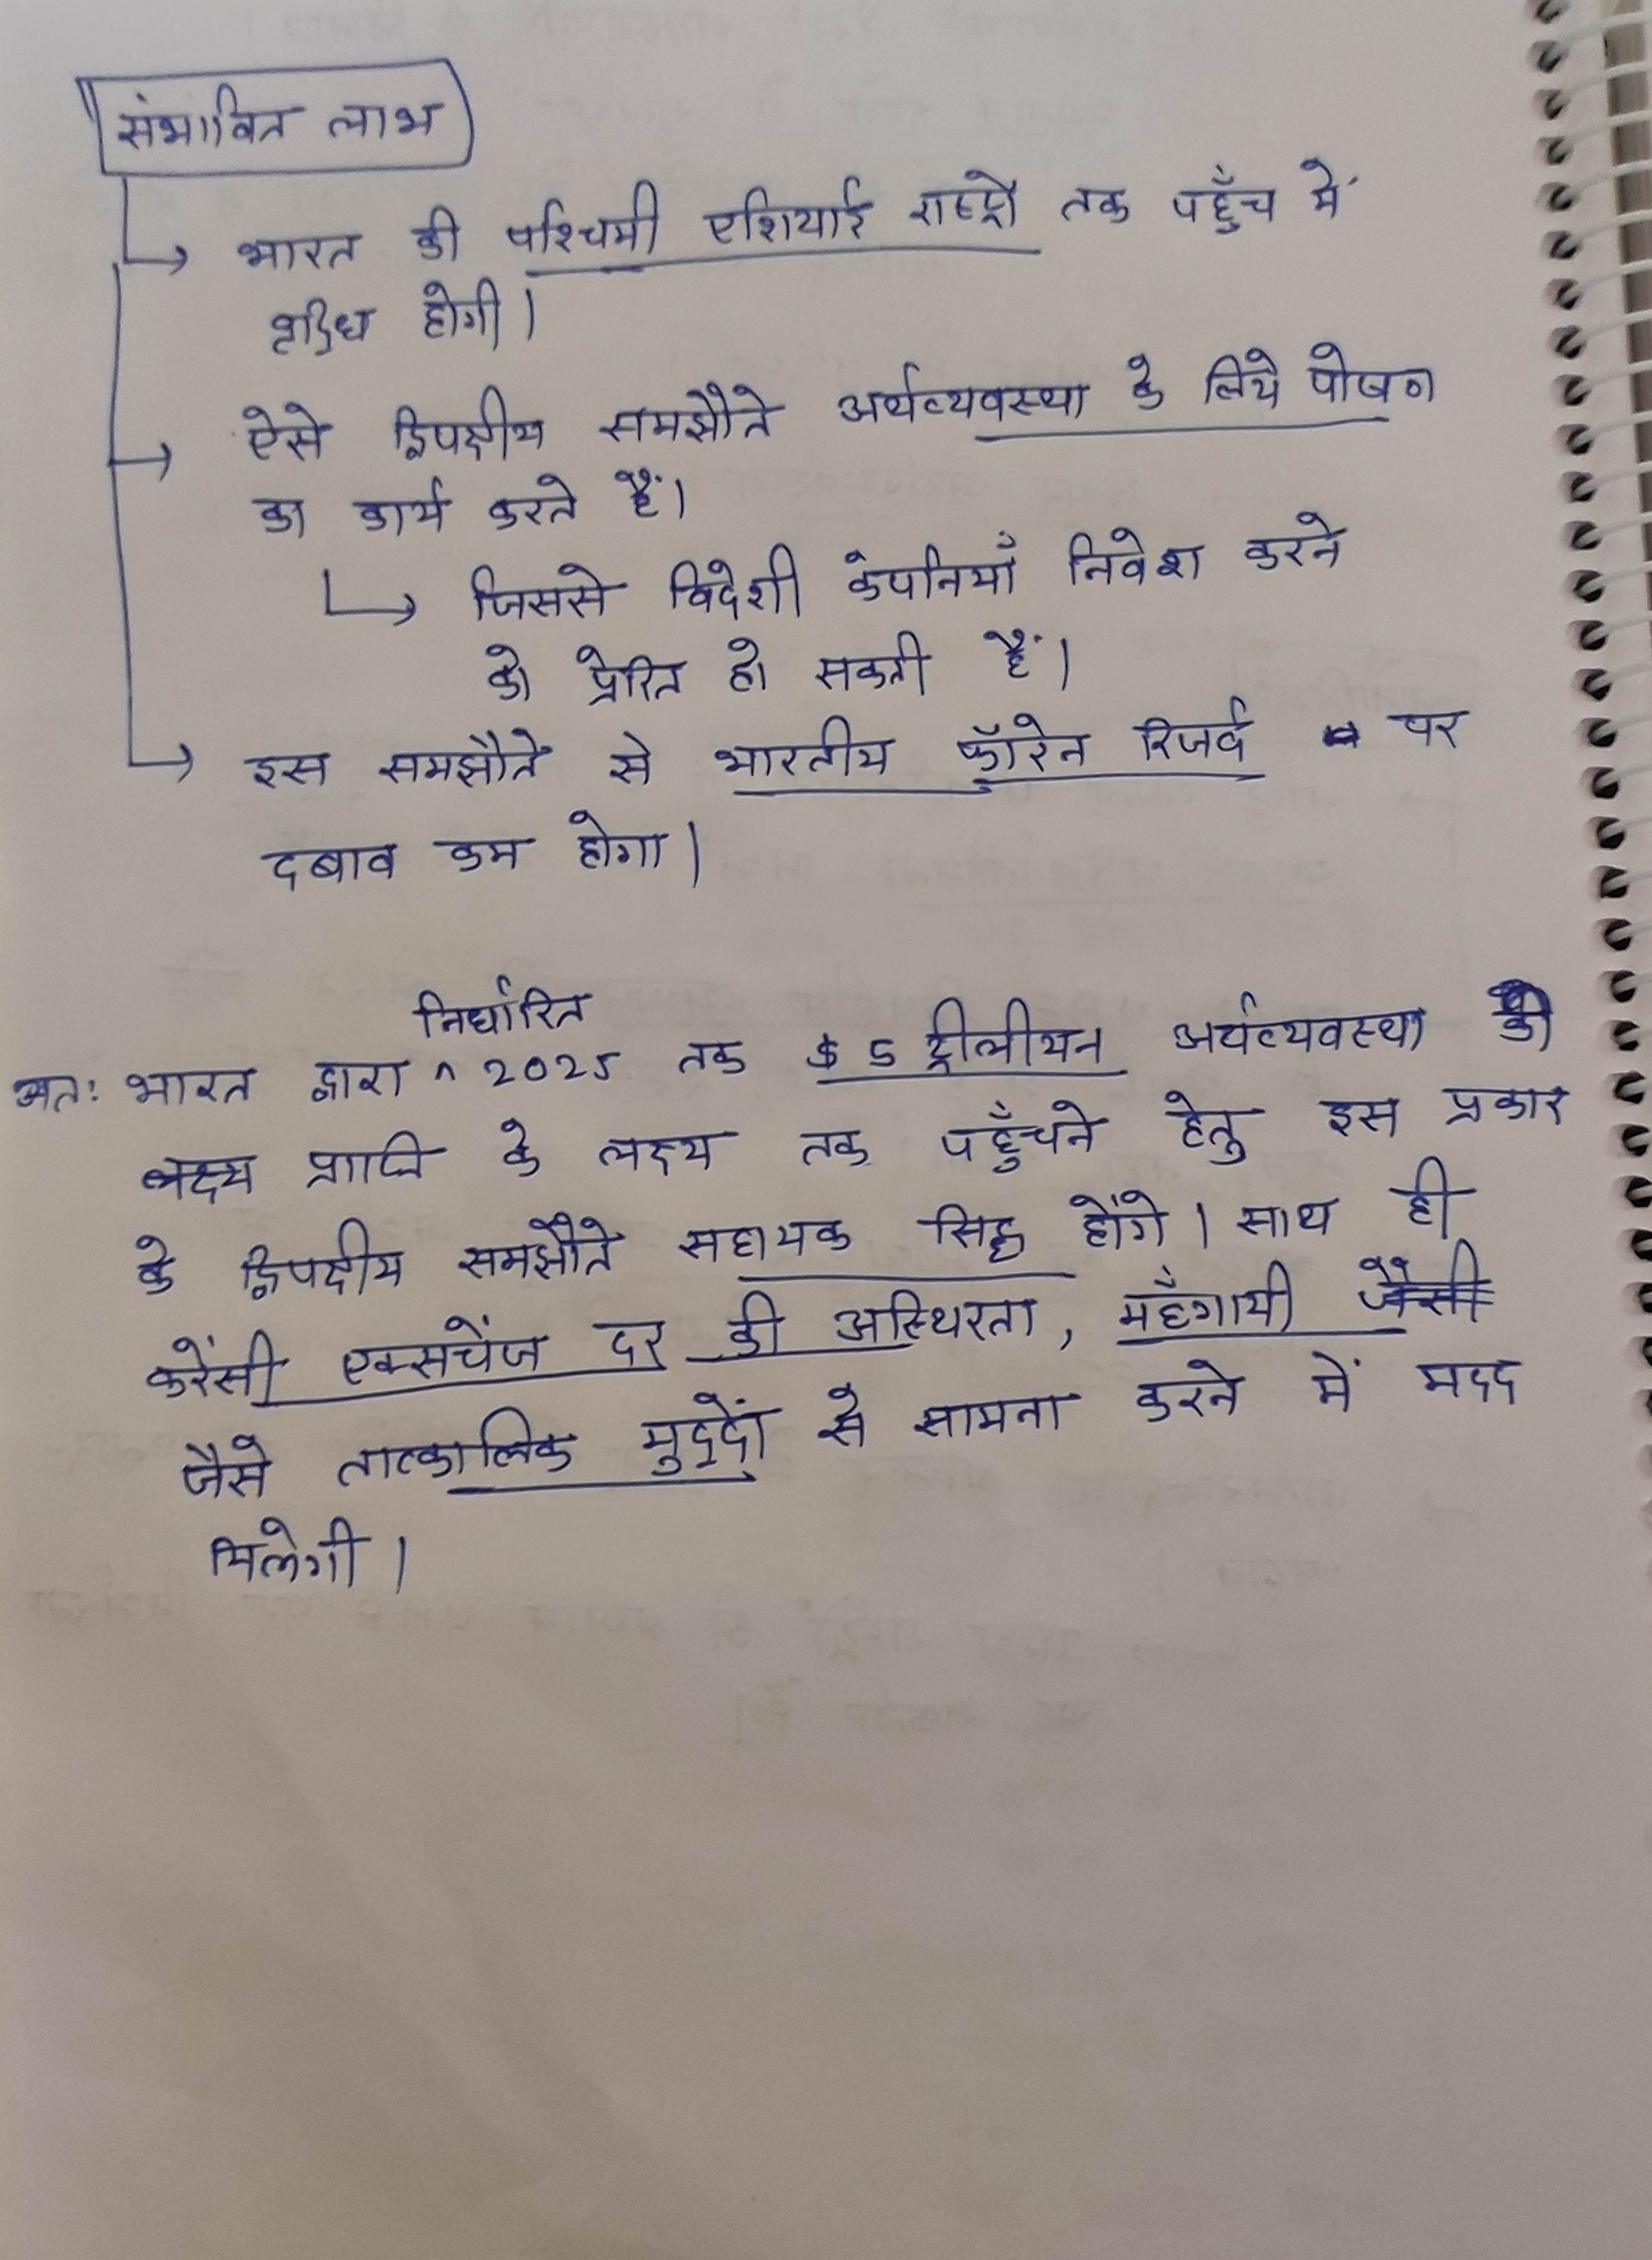 संभावित लाभ
भारत की पश्चिमी एशियाई राष्ट्रों तक पहुँच में
वृद्धि होगी।
ऐसे द्विपक्षीय समझौते अर्थव्यवस्था के लिये पोषण
का कार्य करते हैं।
जिससे विदेशी कंपनियाँ निवेश करने
को प्रेरित हो सकती हैं।
इस समझौते से भारतीय फॉरेन रिजर्व पर
दबाव कम होगा।
निर्धारित
अतः भारत द्वारा ^ 2025 तक $ 5 ट्रीलीयन अर्थव्यवस्था की
लक्ष्य प्राप्ति के लक्ष्य तक पहुँचने हेतु इस प्रकार
के द्विपक्षीय समझौते सहायक सिद्ध होंगे। साथ ही
करेंसी एक्सचेंज दर की अस्थिरता, महँगायी जैसी
जैसे तात्कालिक मुद्दों से सामना करने में मदद
मिलेगी।